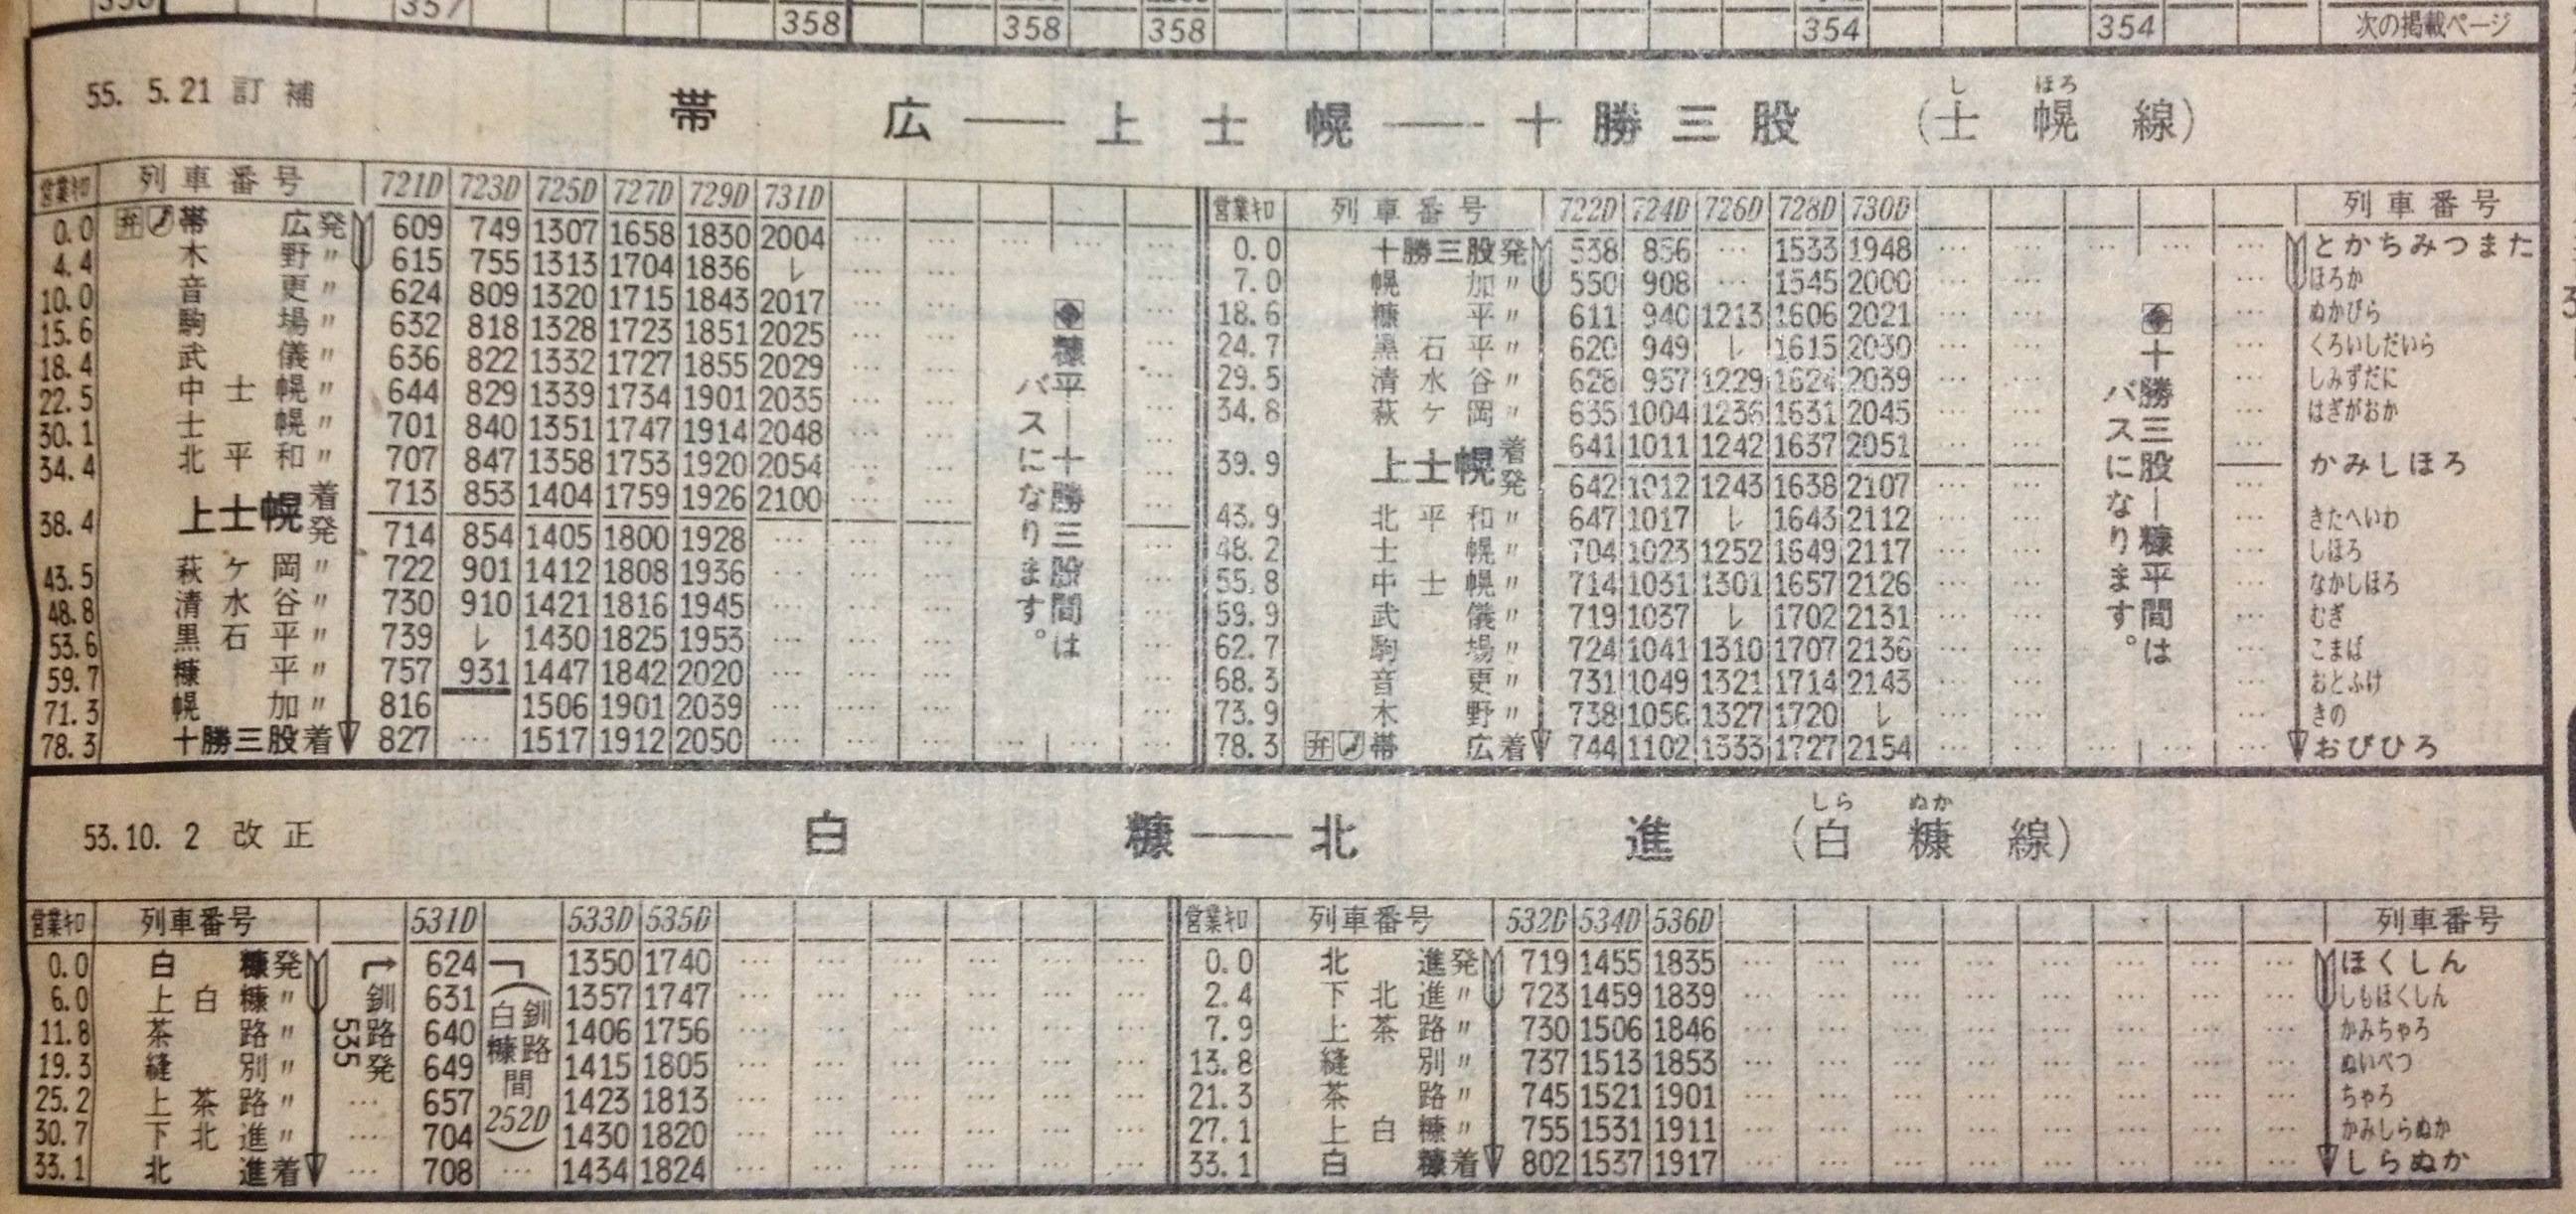 357
358 358 358 354 354 次の掲載ページ
55. 5.21 訂補
帯広――上士幌――十勝三股 (士幌線)
し ほろ
営業キロ 列車番号 721D 723D 725D 727D 729D 731D
0.0 弁 帯広発 609 749 1307 1658 1830 2004 … …
4.4 木野〃 615 755 1313 1704 1836 レ … …
10.0 音更〃 624 809 1320 1715 1843 2017 … …
15.6 駒場〃 632 818 1328 1723 1851 2025 … …
18.4 武儀〃 636 822 1332 1727 1855 2029 … …
22.5 中士幌〃 644 829 1339 1734 1901 2035 … …
30.1 士幌〃 701 840 1351 1747 1914 2048 … …
34.4 北平和〃 707 847 1358 1753 1920 2054 … …
38.4 上士幌着 713 853 1404 1759 1926 2100 … …
発 714 854 1405 1800 1928 … … …
43.5 萩ケ岡〃 722 901 1412 1808 1936 … … …
48.8 清水谷〃 730 910 1421 1816 1945 … … …
53.6 黒石平〃 739 レ 1430 1825 1953 … … …
59.7 糠平〃 757 931 1447 1842 2020 … … …
71.3 幌加〃 816 1506 1901 2039 … … …
78.3 十勝三股着 827 … 1517 1912 2050 … … …
糠平―十勝三股間は
バスになります。
営業キロ 列車番号 722D 724D 726D 728D 730D 列車番号
0.0 十勝三股発 538 856 … 1533 1948 … … とかちみつまた
7.0 幌加〃 550 908 … 1545 2000 … … ほろか
18.6 糠平〃 611 940 1213 1606 2021 … … ぬかびら
24.7 黒石平〃 620 949 レ 1615 2030 … … くろいしだいら
29.5 清水谷〃 628 957 1229 1624 2039 … … しみずだに
34.8 萩ケ岡〃 635 1004 1236 1631 2045 … … はぎがおか
39.9 上士幌着 641 1011 1242 1637 2051 … … かみしほろ
発 642 1012 1243 1638 2107 … …
43.9 北平和〃 647 1017 レ 1643 2112 … … きたへいわ
48.2 士幌〃 704 1023 1252 1649 2117 … … しほろ
55.8 中士幌〃 714 1031 1301 1657 2126 … … なかしほろ
59.9 武儀〃 719 1037 レ 1702 2131 … … むぎ
62.7 駒場〃 724 1041 1310 1707 2136 … … こまば
68.3 音更〃 731 1049 1321 1714 2143 … … おとふけ
73.9 木野〃 738 1056 1327 1720 レ … … きの
78.3 弁 帯広着 744 1102 1333 1727 2154 … … おびひろ
十勝三股―糠平間は
バスになります。
53.10. 2 改正
白糠――北進 (白糠線)
しら ぬか
営業キロ 列車番号 531D 533D 535D
0.0 白糠発 624 1350 1740 … … … … … …
6.0 上白糠〃 631 1357 1747 … … … … … …
11.8 茶路〃 640 1406 1756 … … … … … …
19.3 縫別〃 649 1415 1805 … … … … … …
25.2 上茶路〃 … 657 1423 1813 … … … … … …
30.7 下北進〃 … 704 1430 1820 … … … … … …
33.1 北進着 … 708 … 1434 1824 … … … … … …
釧路発
535
(釧路
白糠間
252D)
営業キロ 列車番号 532D 534D 536D 列車番号
0.0 北進発 719 1455 1835 … … … … … … … … ほくしん
2.4 下北進〃 723 1459 1839 … … … … … … … … しもほくしん
7.9 上茶路〃 730 1506 1846 … … … … … … … … かみちゃろ
13.8 縫別〃 737 1513 1853 … … … … … … … … ぬいべつ
21.3 茶路〃 745 1521 1901 … … … … … … … … ちゃろ
27.1 上白糠〃 755 1531 1911 … … … … … … … … かみしらぬか
33.1 白糠着 802 1537 1917 … … … … … … … … しらぬか